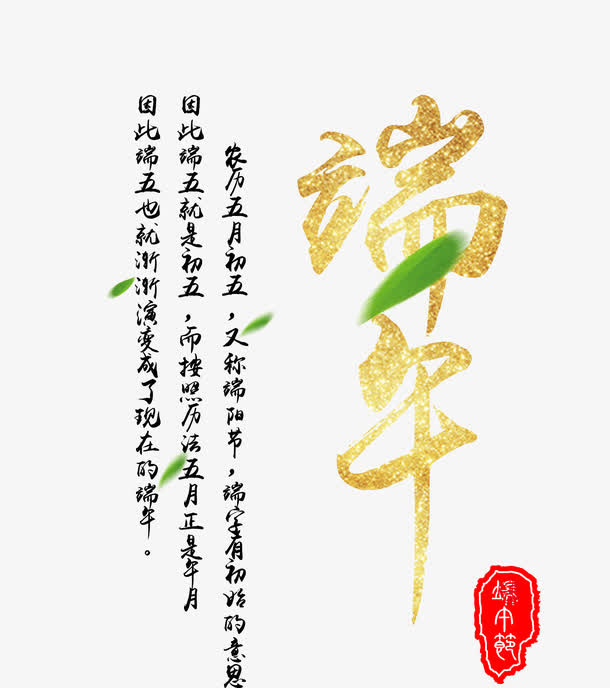 端午
农历五月初五，又称端阳节，端字有初始的意思
因此端五就是初五，而按照历法五月正是午月
因此端五也就渐渐演变成了现在的端午。
端午節